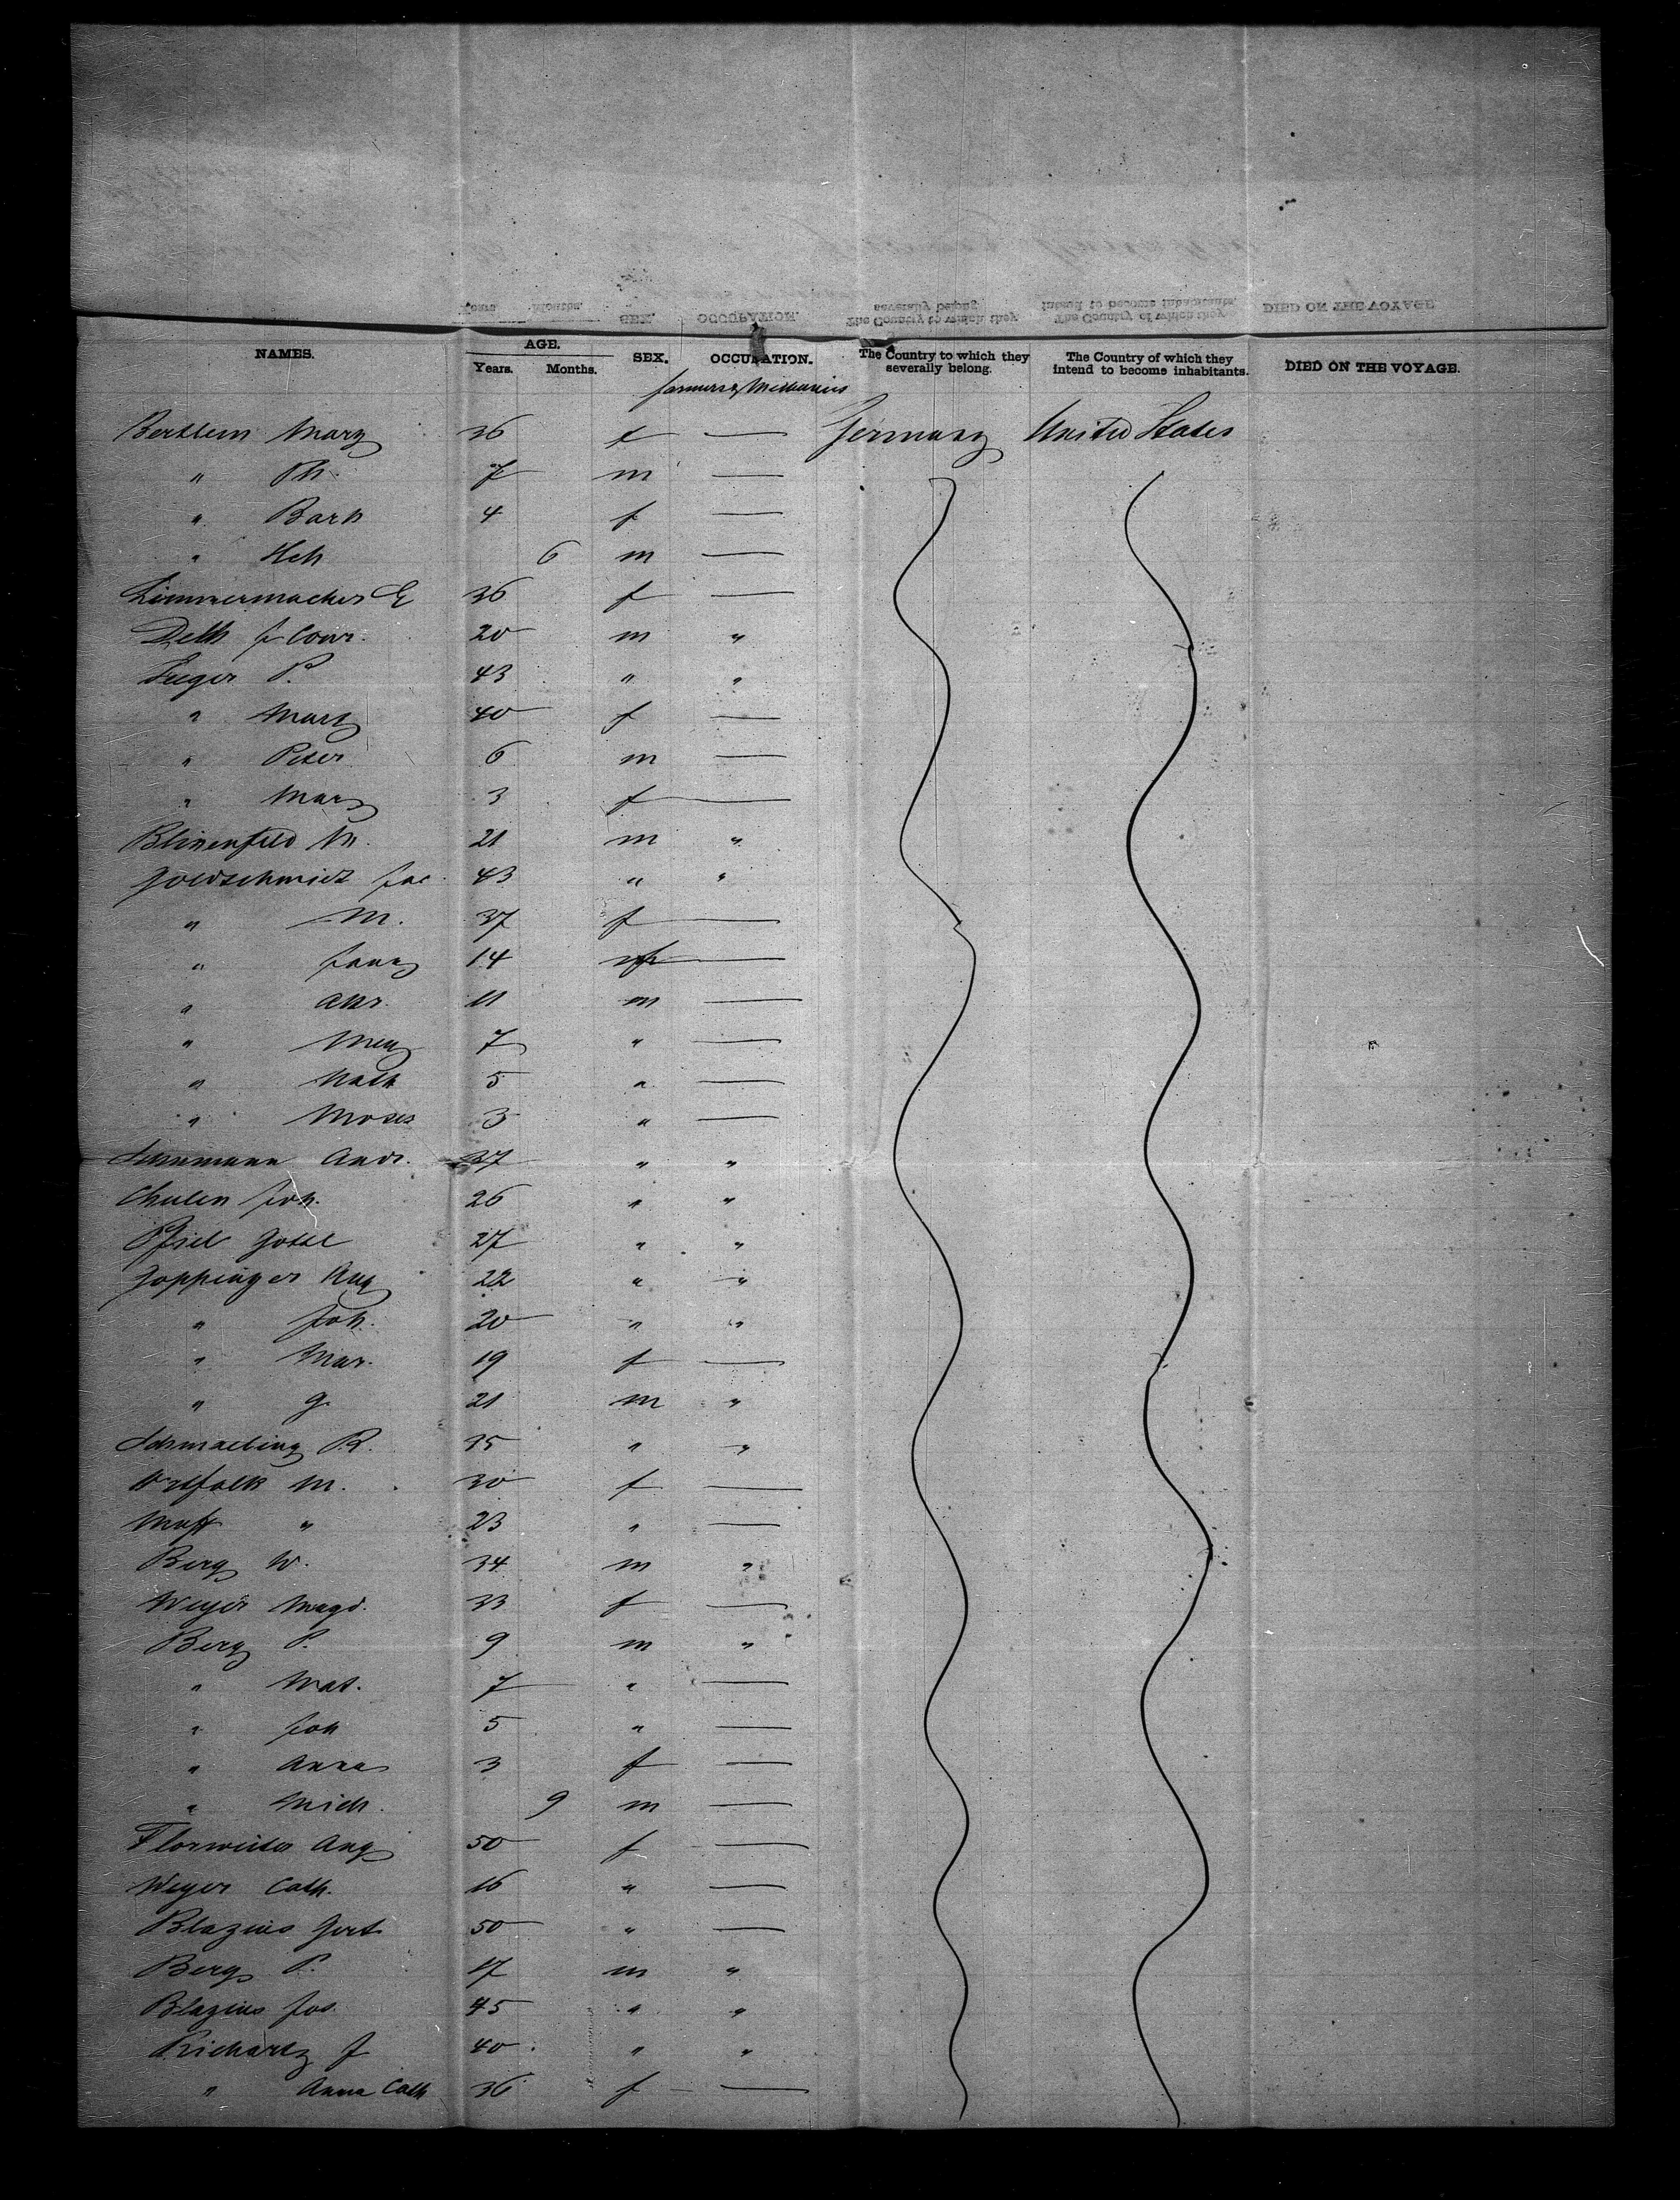 NAMES. AGE. Years. Months. SEX. OCCUPATION. The Country to which they severally belong. The Country of which they intend to become inhabitants. DIED ON THE VOYAGE.
farmers & Mechanics
Mary 36 f — Germany United States
" Ph. 7 m —
" Barb 4 f —
" Hch 6 m —
Zimmermacher E 36 f —
20 m "
P. 43 " "
" Mary 40 f —
" Peter 6 m —
" Mary 3 f —
Blumenfeld M. 21 m "
Goldschmidt Jac. 43 " "
" M. 37 f —
" Fanny 14 f —
" Abr. 11 m —
" 7 " —
" Nath 5 " —
" Moses 3 " —
Andr. 37 " "
Joh. 26 " "
27 " "
Goppinger Aug 22 " "
" Joh. 20 " "
" Mar. 19 f —
" G. 21 m "
Schmaeling R. 35 " "
M. 30 f —
" 23 " —
Berg W. 34 m "
Weyer Magd. 33 f —
Berg P. 9 m "
" Mat. 7 " —
" Joh 5 " —
" Anna 3 f —
" Mich. 9 m —
Ang 50 f —
Weyer Cath. 16 " —
Blazius Gert 50 " —
Berg P. 17 m "
Blazius Jos. 45 " "
Richartz J 40 " "
" Anna Cath 36 f —